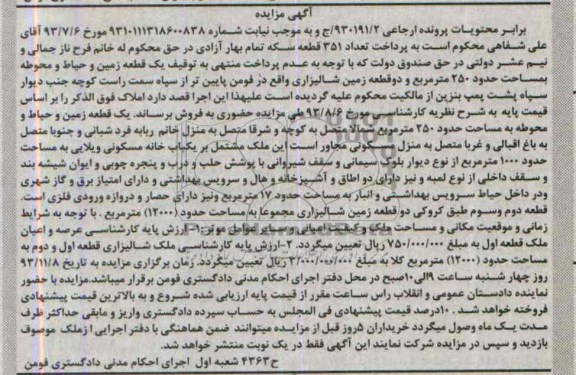 آگهی مزایده
برابر محتویات پرونده ارجاعی ۹۳۰۱۹۱/۲/ج و به موجب نیابت شماره ۹۳۱۰۱۱۱۳۱۸۶۰۰۸۳۸ مورخ ۹۳/۷/۶ آقای
علی شفاهی محکوم است به پرداخت تعداد ۳۵۱ قطعه سکه تمام بهار آزادی در حق محکوم له خانم فرح ناز جمالی و
نیم عشر دولتی در حق صندوق دولت که با توجه به عدم پرداخت منتهی به توقیف یک قطعه زمین و حیاط و محوطه
بمساحت حدود ۲۵۰ مترمربع و دوقطعه زمین شالیزاری واقع در فومن پایین تر از سپاه سمت راست کوچه جنب دیوار
سپاه پشت پمپ بنزین از مالکیت محکوم علیه گردیده است علیهذا این اجرا قصد دارد املاک فوق الذکر را بر اساس
قیمت پایه به شرح نظریه کارشناسی مورخ ۹۳/۸/۶ طی مزایده حضوری به فروش برساند. یک قطعه زمین و حیاط و
محوطه به مساحت حدود ۲۵۰ مترمربع شمالا متصل به کوچه و شرقا متصل به منزل خانم ربابه فرد شبانی و جنوبا متصل
به باغ اقبالی و غربا متصل به منزل مسکونی مجاور است این ملک مشتمل بر یکباب خانه مسکونی ویلایی به مساحت
حدود ۱۰۰۰ مترمربع از نوع دیوار بلوک سیمانی و سقف شیروانی با پوشش حلب و درب و پنجره چوبی و ایوان شیشه بند
و سقف داخلی از نوع لمبه و نیز دارای دو اطاق و آشپزخانه و هال و سرویس بهداشتی و دارای امتیاز برق و گاز شهری
ودر داخل حیاط سرویس بهداشتی و انبار به مساحت حدود ۱۷ مترمربع ونیز دارای حصار و دروازه ورودی فلزی است.
قطعه دوم وسوم طبق کروکی دو قطعه زمین شالیزاری مجموعا به مساحت حدود (۱۲۰۰۰) مترمربع . با توجه به شرایط
زمانی و موقعیت مکانی و مساحت ملک و کیفیت اعیانی و سایر عوامل موثر ۱- ارزش پایه کارشناسی عرصه و اعیان
ملک قطعه اول به مبلغ ۷۵۰/۰۰۰/۰۰۰ ریال تعیین میگردد. ۲-ارزش پایه کارشناسی ملک شالیزاری قطعه اول و دوم به
مساحت حدود (۱۲۰۰۰) مترمربع کلا به مبلغ ۳/۰۰۰/۰۰۰/۰۰۰ ریال تعیین میگردد. زمان برگزاری مزایده به تاریخ ۹۳/۱۱/۸
روز چهار شنبه ساعت ۹الی۱۰صبح در محل دفتر اجرای احکام مدنی دادگستری فومن برقرار میباشد.مزایده با حضور
نماینده دادستان عمومی و انقلاب راس ساعت مقرر از قیمت پایه ارزیابی شده شروع و به بالاترین قیمت پیشنهادی
فروخته خواهد شد . ۱۰درصد قیمت پیشنهادی فی المجلس به حساب سپرده دادگستری واریز و مابقی حداکثر ظرف
مدت یک ماه وصول میگردد خریداران ۵روز قبل از مزایده میتوانند ضمن هماهنگی با دفتر اجرایی ازملک موصوف
بازدید و سپس در مزایده شرکت نمایند این آگهی فقط در یک نوبت منتشر خواهد شد.
ح۴۳۶۳ شعبه اول اجرای احکام مدنی دادگستری فومن